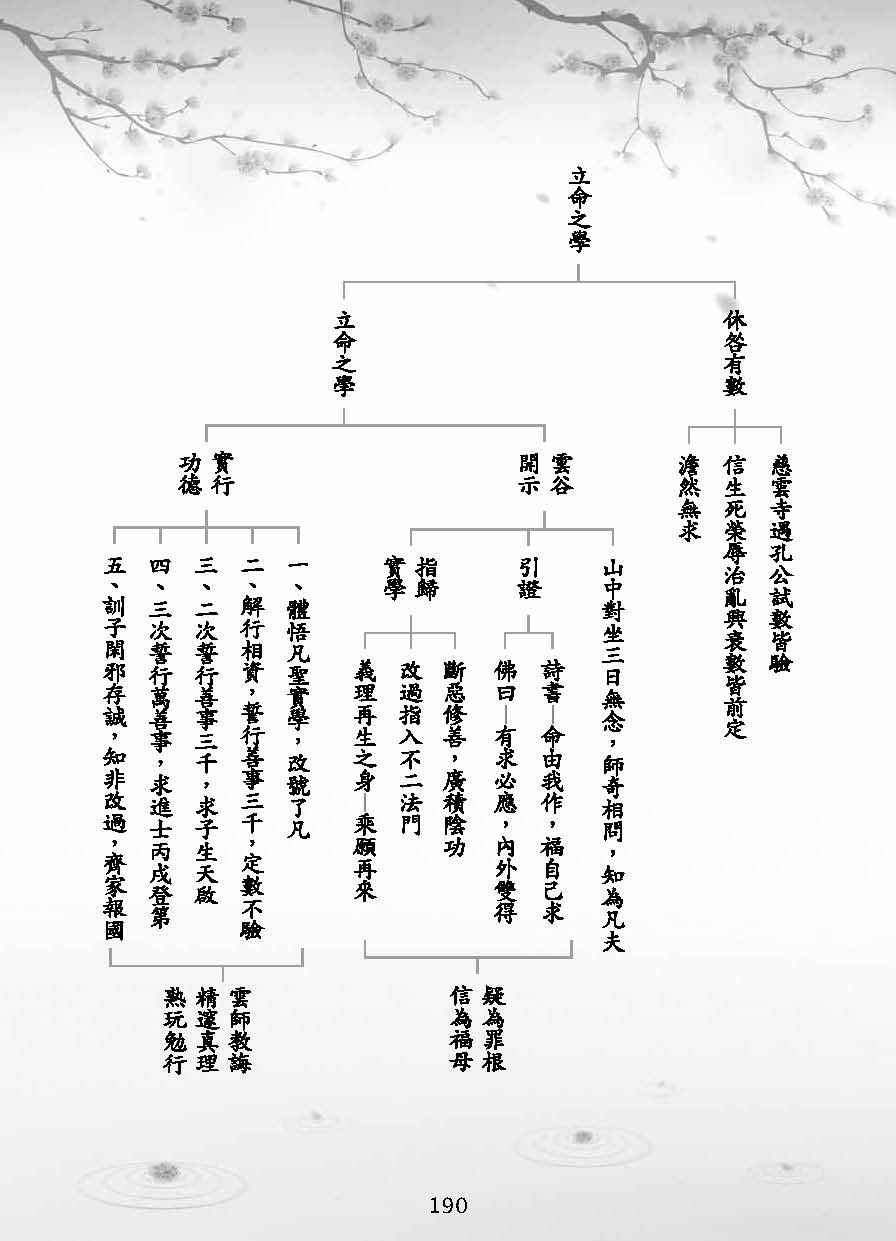 立命之學
休咎有數
慈雲寺遇孔公試數皆驗
信生死榮辱治亂興衰數皆前定
澹然無求
立命之學
雲谷
開示
山中對坐三日無念，師奇相問，知為凡夫
引證
詩書—命由我作，福自己求
佛曰—有求必應，內外雙得
指歸
實學
斷惡修善，廣積陰功
改過指入不二法門
義理再生之身—乘願再來
疑為罪根
信為福母
實行
功德
一、體悟凡聖實學，改號了凡
二、解行相資，誓行善事三千，定數不驗
三、二次誓行善事三千，求子生天啟
四、三次誓行萬善事，求進士丙戌登第
五、訓子閑邪存誠，知非改過，齊家報國
雲師教誨
精邃真理
熟玩勉行
190